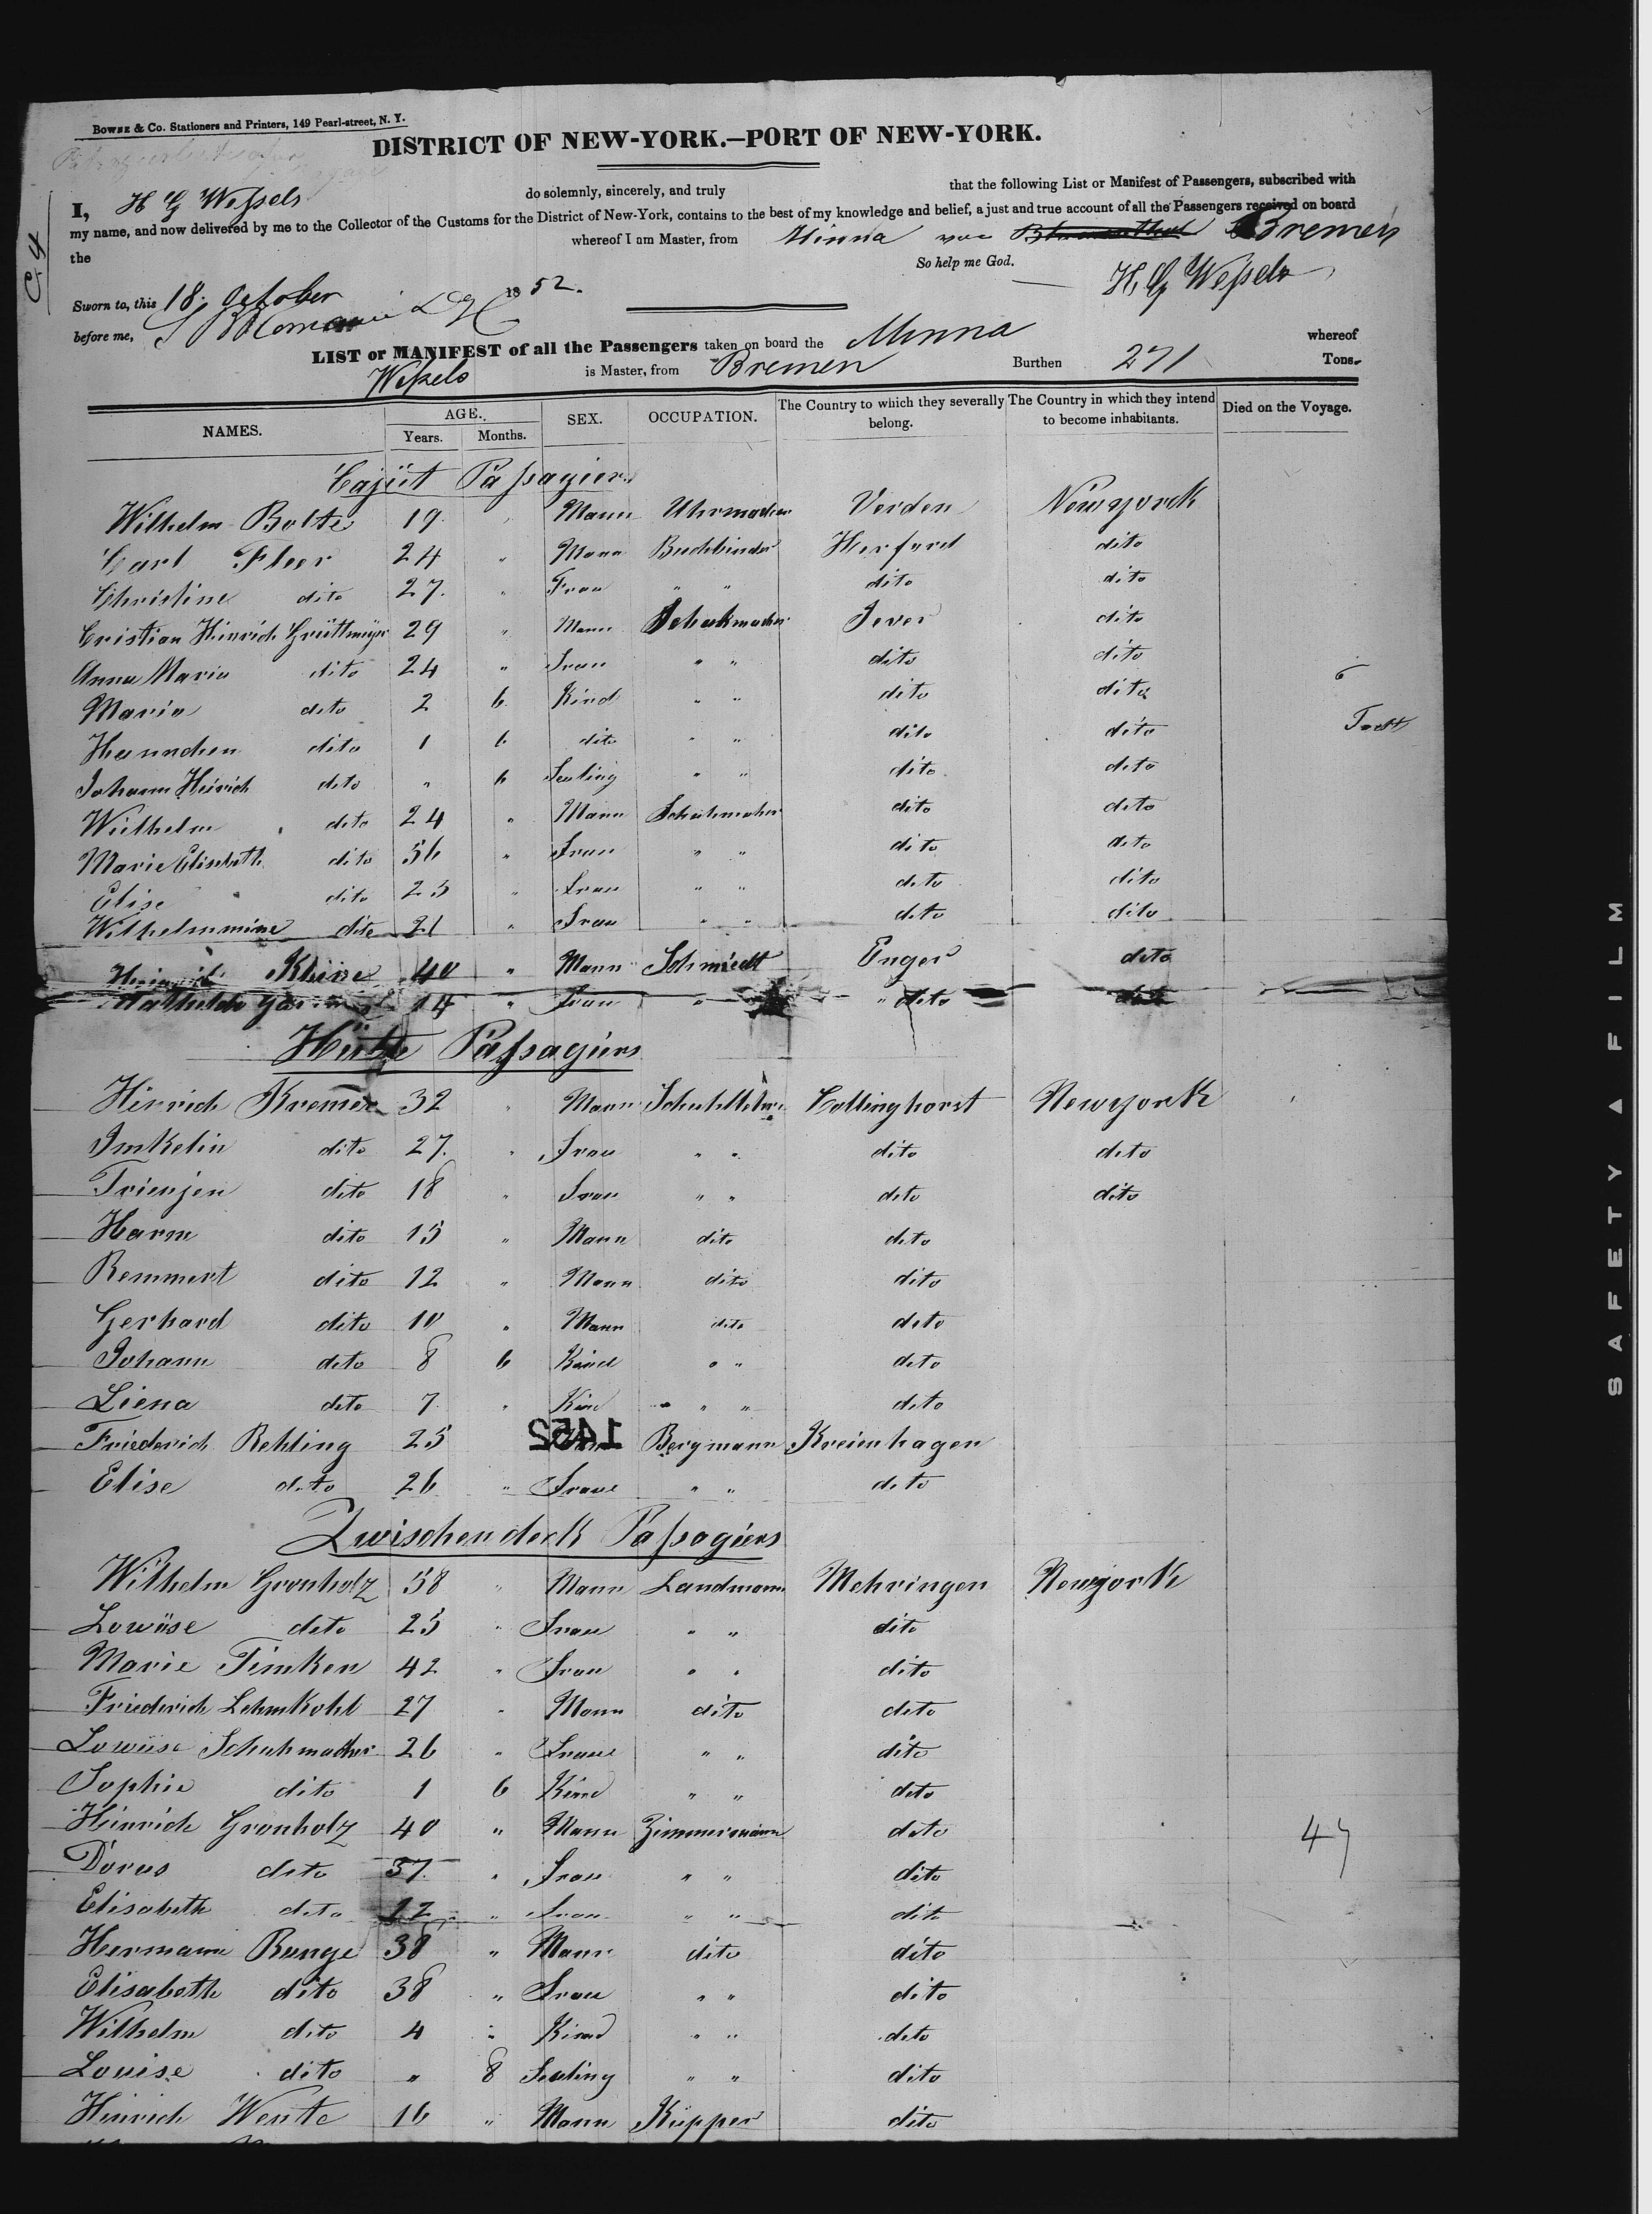 BOWNE & Co. Stationers and Printers, 149 Pearl-street, N. Y.
DISTRICT OF NEW-YORK.—PORT OF NEW-YORK.
I, H G Weſsels do solemnly, sincerely, and truly that the following List or Manifest of Passengers, subscribed with
my name, and now delivered by me to the Collector of the Customs for the District of New-York, contains to the best of my knowledge and belief, a just and true account of all the Passengers received on board
the whereof I am Master, from Minna von Bremen
So help me God.
Sworn to, this 18. October 1852. H. G Weſsels
before me,
LIST or MANIFEST of all the Passengers taken on board the Minna whereof
Weſsels is Master, from Bremen Burthen 271 Tons.
NAMES. AGE. Years. Months. SEX. OCCUPATION. The Country to which they severally belong. The Country in which they intend to become inhabitants. Died on the Voyage.
Cajüt Paſsagier
Wilhelm Bolte 19 " Mann Uhrmacher Verden Newyorck
Carl Fleer 24 " Mann Buchbinder Herford dito
Christine dito 27. " Frau " " dito dito
Cristian Hinrich Grüttmeyer 29 " Mann Schuhmacher Jever dito
Anna Maria dito 24 " Frau " " dito dito
Maria dito 2 6 Kind " " dito dito
Hannchen dito 1 6 dito " " dito dito Todt
Johann Heinrich dito " 6 Seuling " " dito dito
Wilhelm dito 24 " Mann Schuhmacher dito dito
Marie Elisebeth dito 56 " Frau " " dito dito
Elise dito 25 " Frau " " dito dito
Wilhelmmine dito 21 " Frau " " dito dito
Heinrich Kleine 40 " Mann Schmiedt Enger dito
Mathilde 14 " Frau " " dito dito
Hütte Paſsagiers
Hinrich Kremer 32 " Mann Collinghorst Newyork
Imkelin dito 27. " Frau " " dito dito
Trienjen dito 18 " Frau " " dito dito
Harm dito 15 " Mann dito dito
Remmert dito 12 " Mann dito dito
Gerhard dito 10 " Mann dito dito
Johann dito 8 6 Kind " " dito
Liena dito 7 " Kind " " dito
Friederich Rehling 25 1452 Bergmann Kreienhagen
Elise dito 26 " Fraue " " dito
Zwischendeck Paſsagiers
Wilhelm Gronholz 58 " Mann Landmann Mehringen Newyork
Lowiise dito 25 " Frau " " dito
Marie Timken 42 " Frau " " dito
Friederich Lehmkohl 27 " Mann dito dito
Lowiise Schuhmacher 26 " Fraue " " dito
Sophie dito 1 6 Kind " " dito
Heinrich Gronholz 40 " Mann Zimmermann dito 47
Dorus dito 37. " Frau " " dito
Elisabeth dito 12 " Frau " " dito
Hermann Runge 38 " Mann dito dito
Elisabeth dito 38 " Frau " " dito
Wilhelm dito 4 " Kind " " dito
Louise dito " 8 Seuling " " dito
Hinrich Wente 16 " Mann Küpper dito
SAFETY ▲ FILM